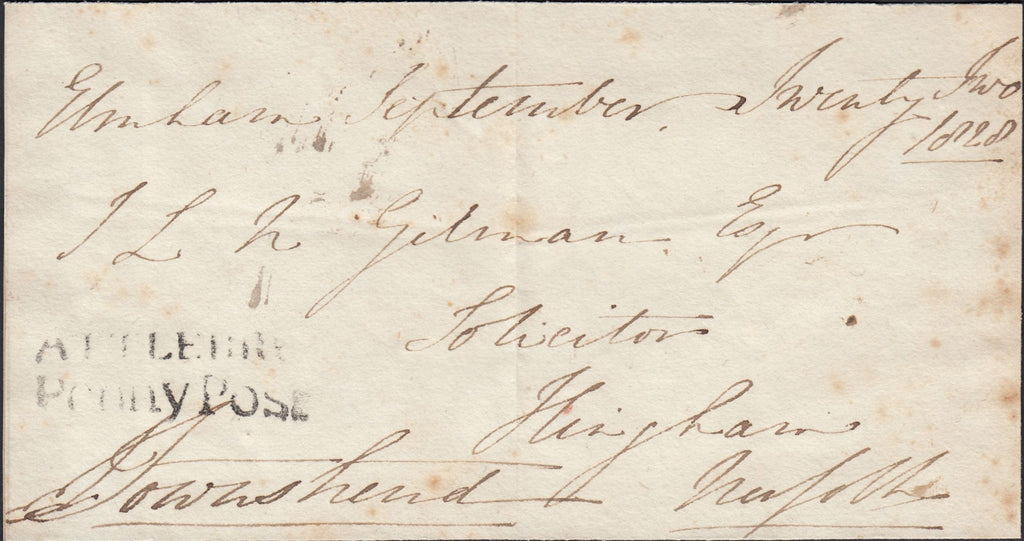 Elmham September Twenty Two
1828
J L N Gilman Esqr
Solicitor
Penny Post
Hingham
Townshend Norfolk